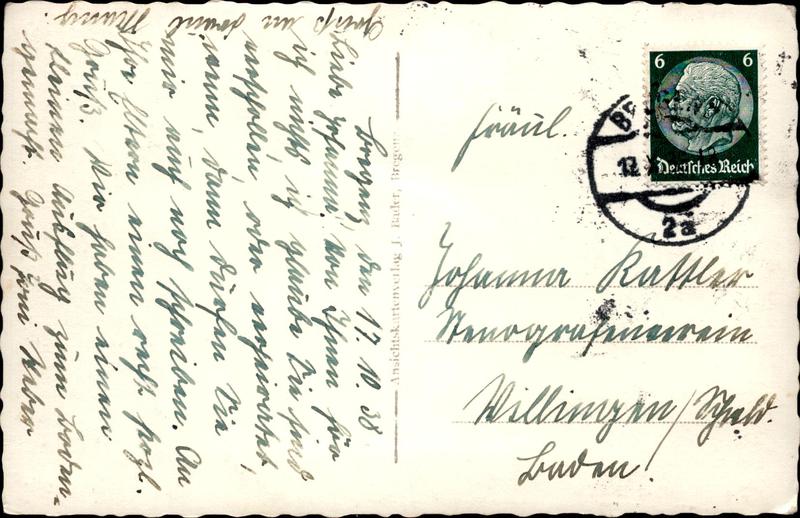 Bregenz, den 17.10.38
Liebe Johanna! Von Ihnen hör
ich nichts, ich glaube Sie sind
verschollen, oder verheiratet,
wenn, dann dürfen Sie
mir auch noch schreiben. An
Ihre Eltern einen recht herzl.
Gruß. Wir haben einen
kleinen Ausflug zum Boden-
gemacht. Gruß
Gruß an
Ansichtskartenverlag J. Bader, Bregenz
Fräul.
Johanna Kattler
Stenografenverein
Villingen/Schwld.
Baden.
6 6
Deutsches Reich
BREGENZ
2a